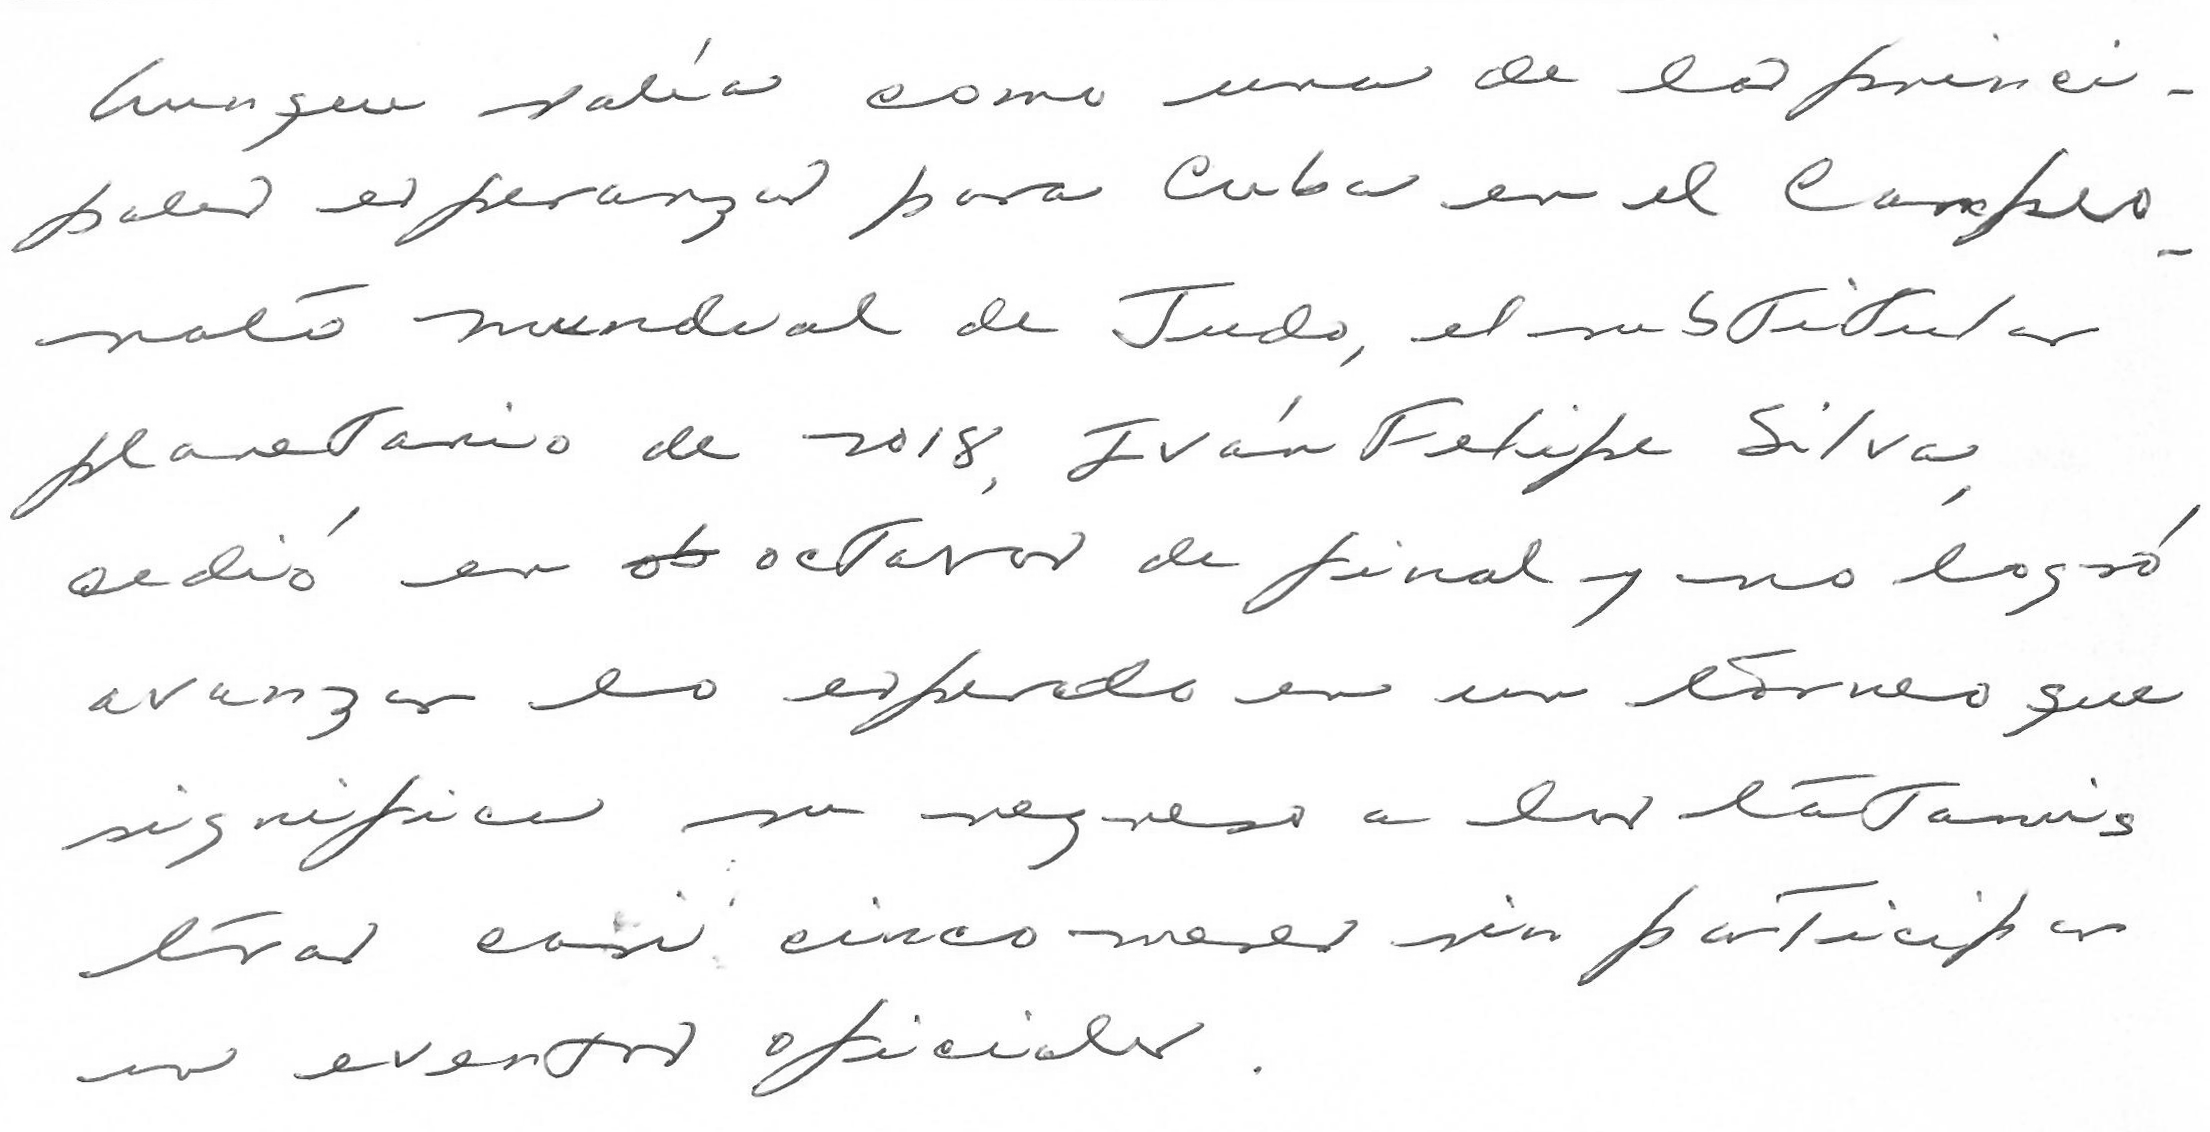 Aunque salía como una de las princi-
pales esperanzas para Cuba en el Campeo-
nato mundial de Judo, el subtitular
planetario de 2018, Iván Felipe Silva,
cedió en octavos de final y no logró
avanzar lo esperado en un torneo que
significa su regreso a los tatamis
tras casi cinco meses sin participar
en eventos oficiales.